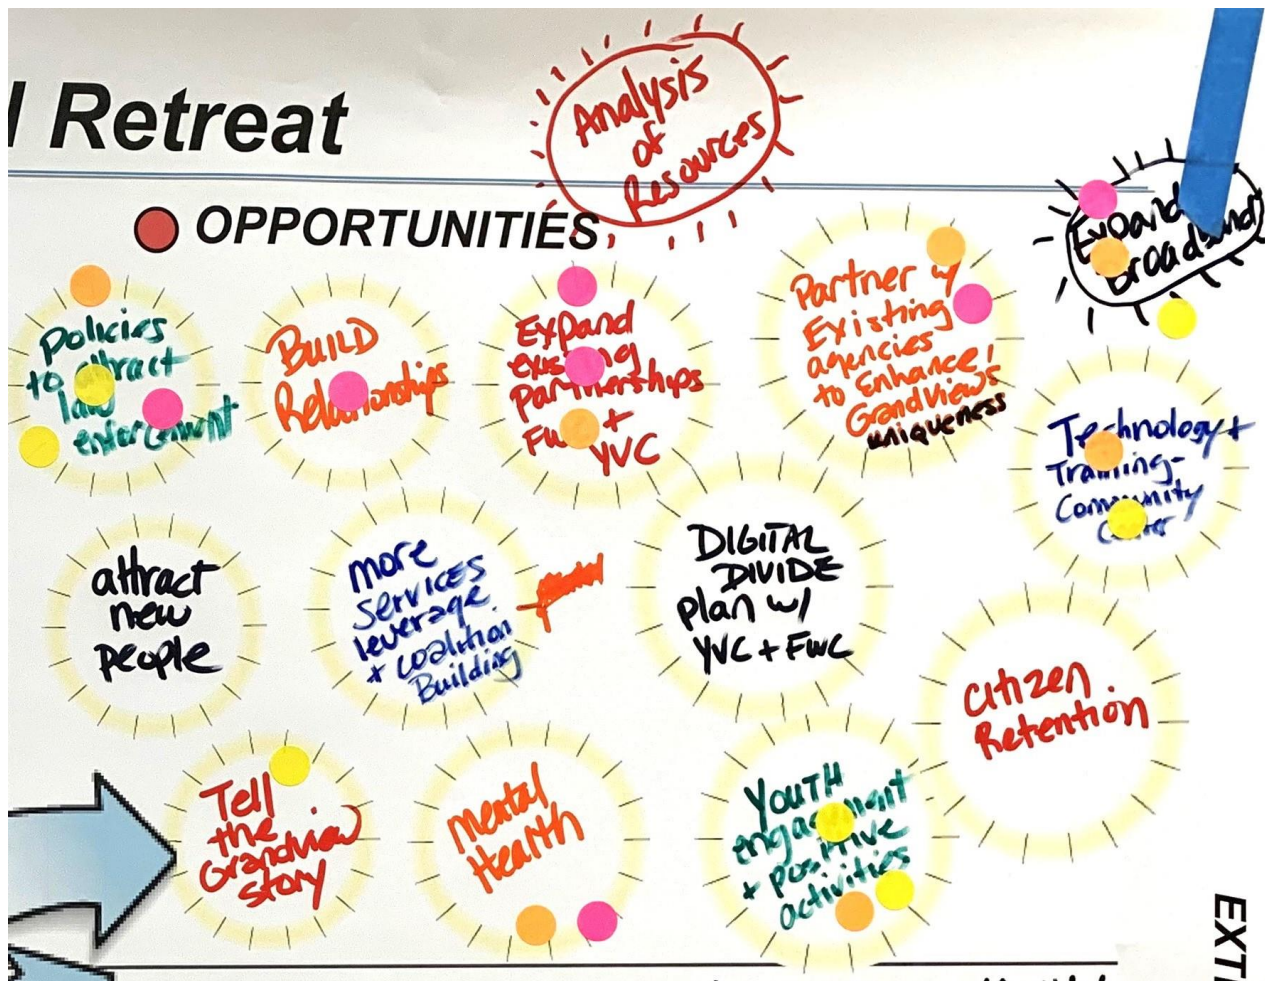 Retreat
Analysis
of
Resources
OPPORTUNITIES
Expand
Broadband
Policies
to attract
law
enforcement
BUILD
Relationships
Expand
existing
partnerships
FWC +
YVC
Partner w/
Existing
agencies
to Enhance
Grandview's
uniqueness
Technology +
Training-
Community
Center
attract
new
people
more
services
leverage
+ coalition
Building
DIGITAL
DIVIDE
plan w/
YVC + FWC
Citizen
Retention
Tell
the
Grandview
story
Mental
Health
YOUTH
engagement
+ positive
activities